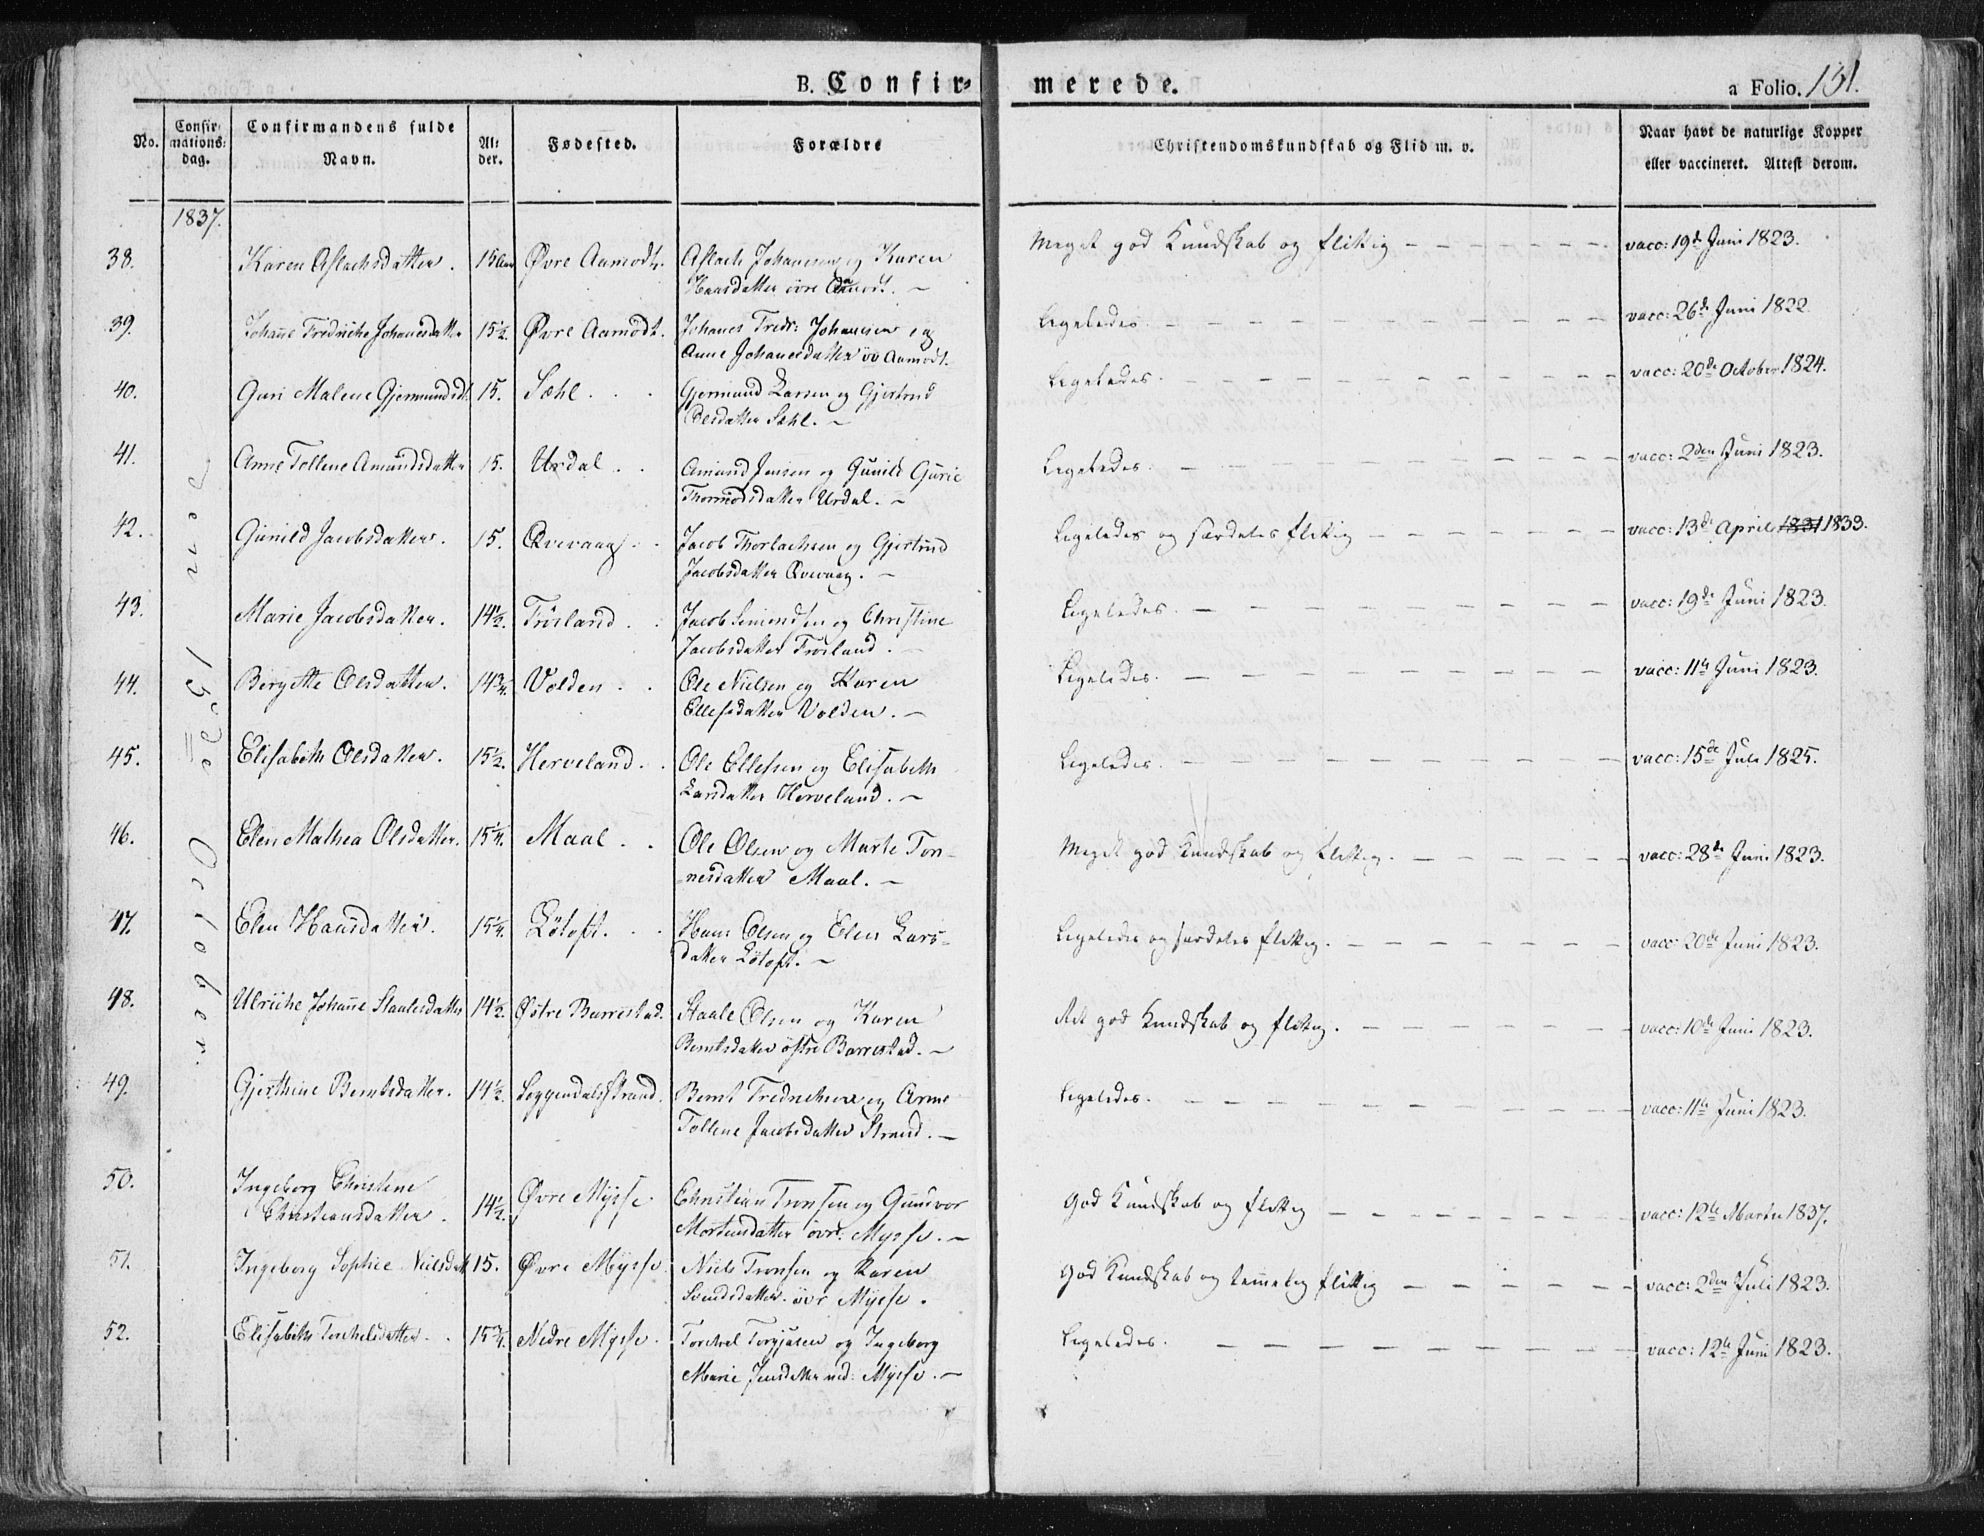 B. Confir- merede. a Folio. 131.
No.
Confir-
mations-
dag.
Confirmandens fulde
Navn.
Al-
der.
Fødested.
Forældre
Christendomskundskab og Flid m. v.
Naar havt de naturlige Kopper
eller vaccineret. Attest derom.
1837.
den 15de October.
38. Karen Aslachsdatter. 15 Aar Øvre Aamodt. Aslach Johannesen og Karen
Hansdatter övre Aamodt. Meget god Kundskab og flittig vacc: 19de Juni 1823.
39. Johanne Fredriche Johannesdatter 15½. Øvre Aamodt. Johannes Fredr: Johannesen og
Anne Johannesdatter öv Aamodt. Ligeledes vacc: 26de Juni 1822
40. Guri Malene Gjermundsdt. 15. Sæhl. Gjermund Larsen og Gjertrud
Olesdatter Sæhl. Ligeledes. vacc: 20de October 1824.
41. Anne Tollene Amundsdatter 15. Urdal. Amund Jensen og Gunild Gurie
Thormodsdatter Urdal. Ligeledes. vacc: 2den Juni 1823.
42. Gunild Jacobsdatter. 15. Qvevaag. Jacob Thorlachsen og Gjertrud
Jacobsdatter Qvevaag. Ligeledes og særdeles flittig vacc: 13de April 1831 1833.
43. Marie Jacobsdatter. 14½. Frösland. Jacob Simondsen og Christine
Jacobsdatter Frösland. Ligeledes. vacc: 19de Juni 1823.
44. Bergette Olsdatter. 14¾. Volden. Ole Nielsen og Karen
Ellefsdatter Volden. Ligeledes. vacc: 11te Juni 1823.
45. Elisabeth Olsdatter. 15½. Herveland. Ole Ellefsen og Elisabeth
Larsdatter Herveland. Ligeledes. vacc: 15de Juli 1825.
46. Elen Mathea Olsdatter. 15¼. Maal. Ole Olsen og Marte Ton-
nesdatter Maal. Meget god Kundskab og flittig. vacc: 28de Juni 1823.
47. Elen Hansdatter. 15¼. Lötoft. Hans Olsen og Elen Lars-
datter Lötoft. Ligeledes og særdeles flittig. vacc: 20de Juni 1823.
48. Ulriche Johanne Staalesdatter 14½. Østre Barrestad. Staale Olsen og Karen
Berntsdatter östre Barrestad. Ret god Kundskab og flittig. vacc: 10de Juni 1823.
49. Gjerthine Berntsdatter. 14½. Loggendalsstrand. Bernt Fredrichsen og Anne
Tollene Jacobsdatter Strand. Ligeledes. vacc: 11te Juni 1823.
50. Ingeborg Christene
Christiansdatter. 14½. Øvre Mysse. Christian Tronsen og Gunvor
Mortensdatter övr: Mysse. God Kundskab og flittig vacc: 12te Martii 1837.
51. Ingeborg Sophie Nielsdatt 15. Øvre Mysse Niels Tronsen og Karen
Svendsdatter övr Mysse. God Kundskab og temmelig flittig vacc: 2den Juli 1823.
52. Elisabeth Torkelsdatter. 15¾. Nedre Mysse. Torckel Torgjusen og Ingeborg
Marie Jensdatter ned: Mysse. Ligeledes. vacc: 12te Juni 1823.